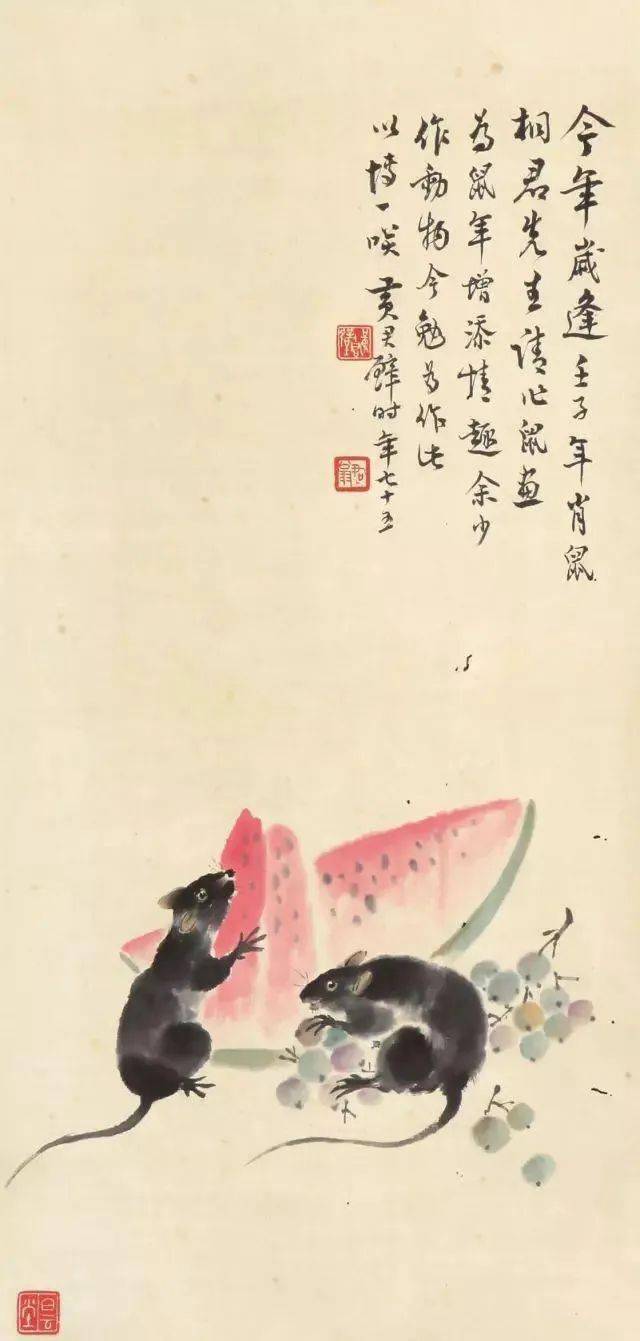 今年歲逢壬子年肖鼠
桐君先生請作鼠畫
為鼠年增添情趣余少
作動物今勉為作此
以博一唉黃君璧時年七十五
君翁
白雲堂